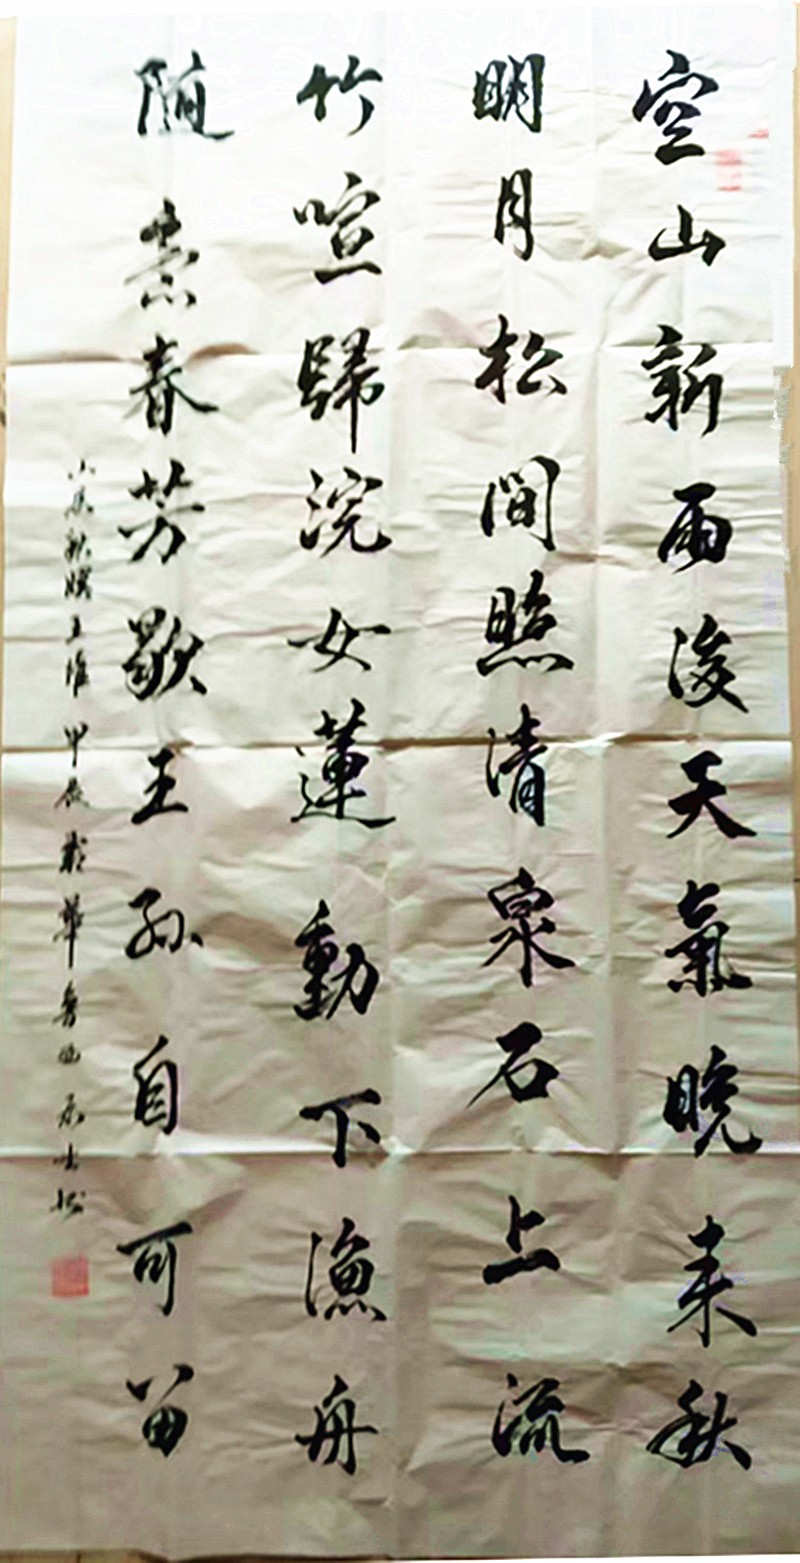 空山新雨後天氣晚来秋
明月松間照清泉石上流
竹喧歸浣女蓮動下漁舟
随意春芳歇王孫自可留
山居秋暝王維甲辰